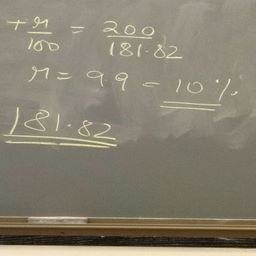 + r/100 = 200/181.82
r = 9.9 = 10%
181.82